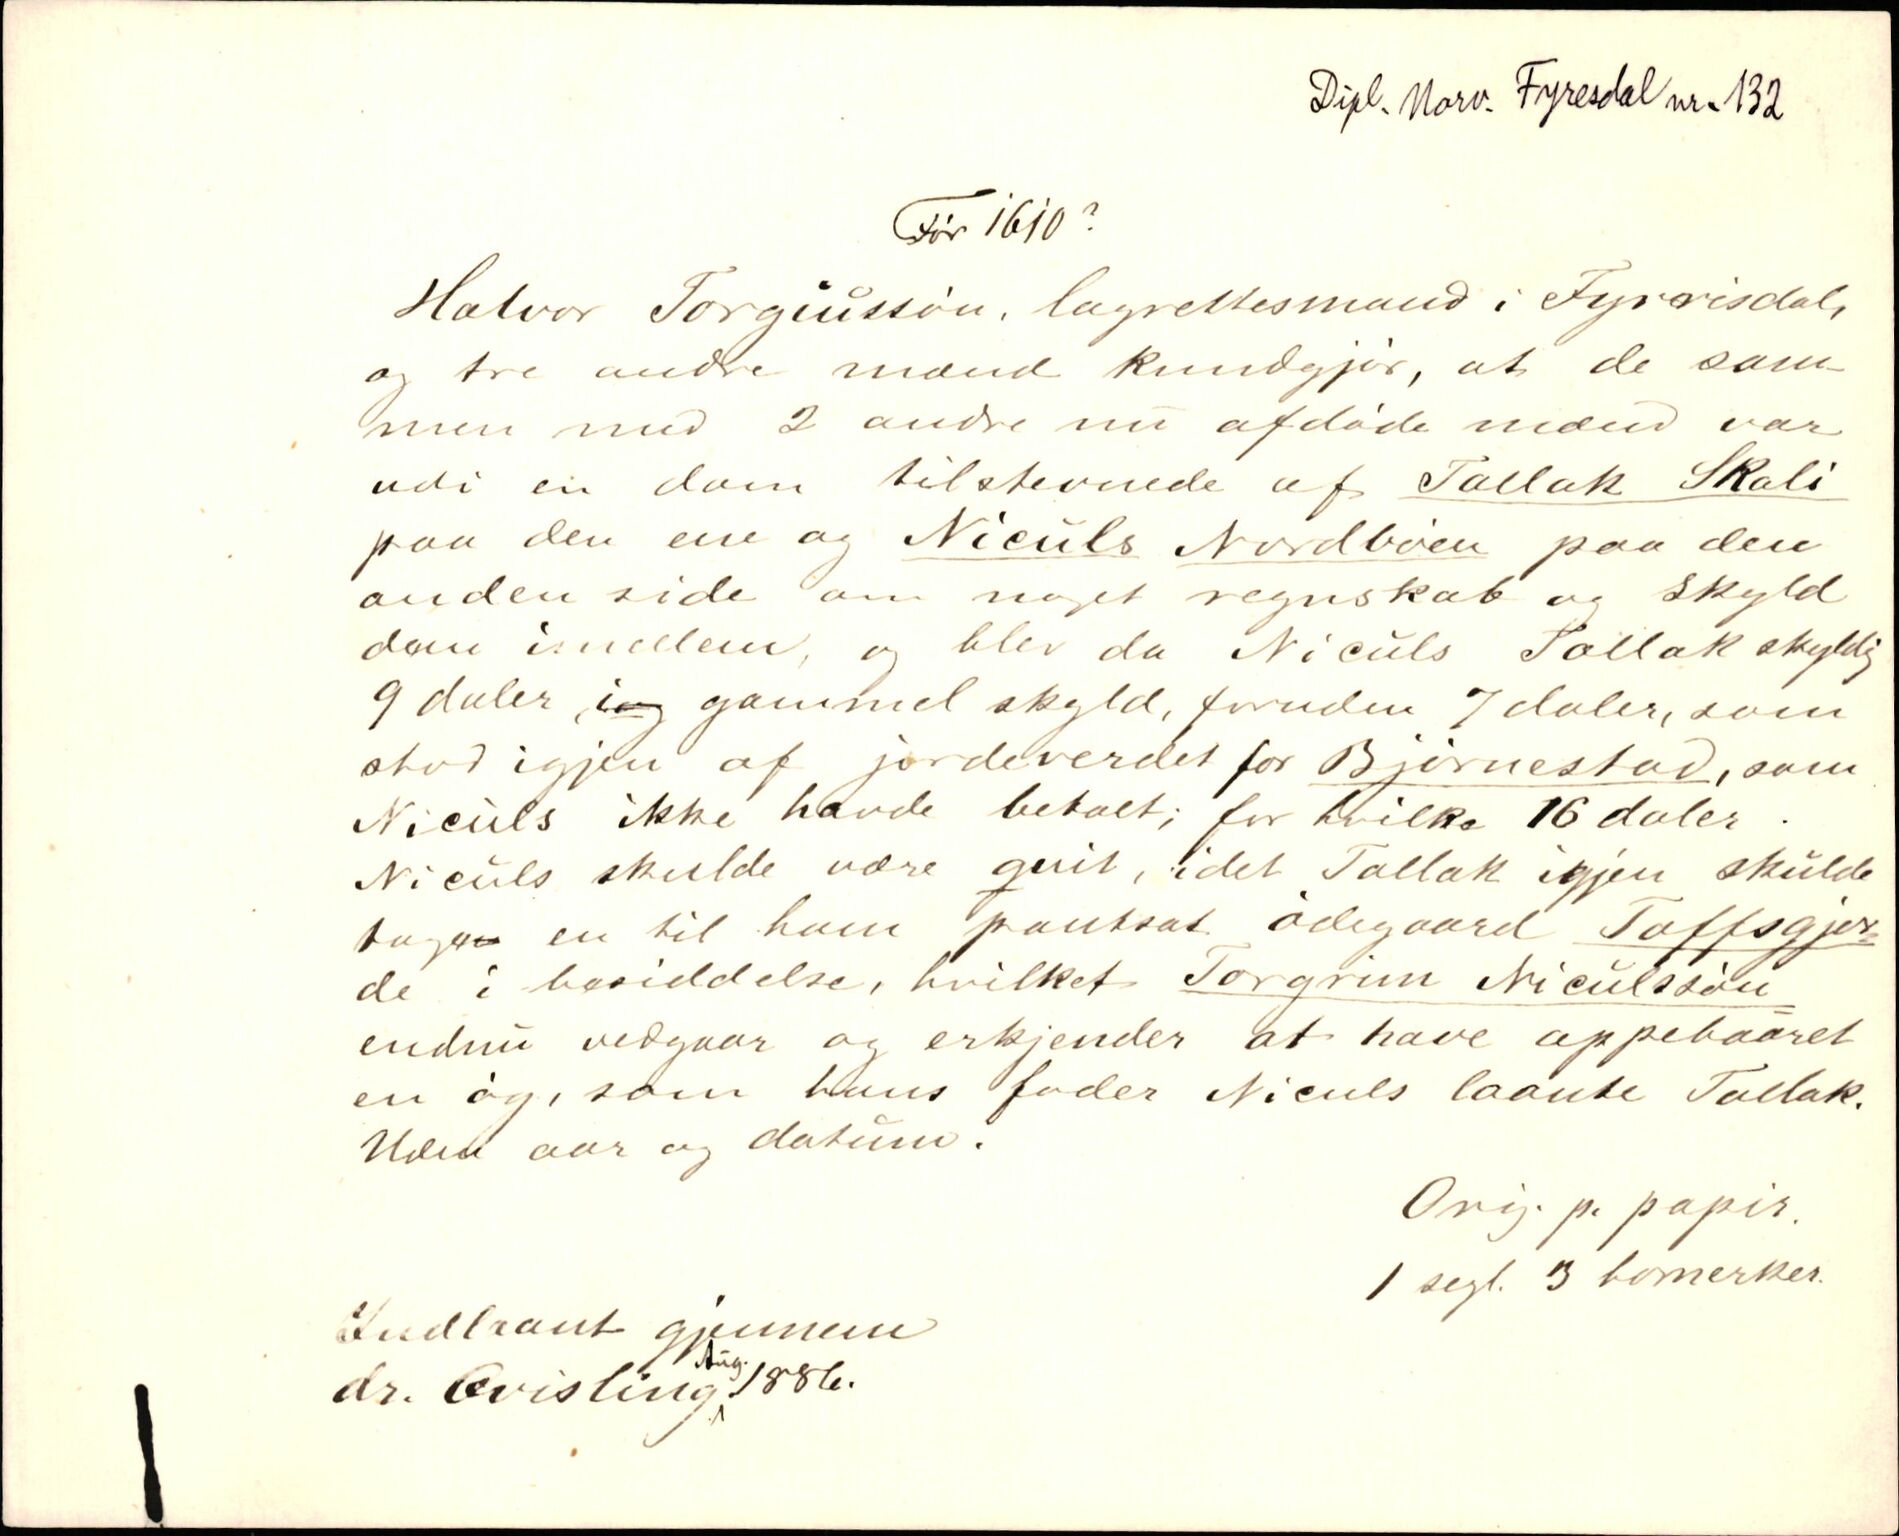 Dipl. Norv. Fyresdal nr. 132
Før 1610?
Halvor Torgiussøn, lagrettesmand i Fyrrisdal,
og tre andre mænd kundgjør, at de sam-
men med 2 andre nu afdøde mænd var
udi en dom tilstevnede af Tallak Skali
paa den ene og Niculs Nordbøen paa den
anden side om noget regnskab og skyld
dem imellem, og blev da Niculs Tallak skyldig
9 daler, i gammel skyld, foruden 7 daler, som
stod igjen af jordeverdet for Bjørnestad, som
Niculs ikke havde betalt; for hvilke 16 daler
Niculs skulde være qvit, idet Tallak igjen skulde
tage en til ham pantsat ødegaard Taffsgjer-
de i besiddelse, hvilket Torgrim Niculssøn
endnu vedgaar og erkjender at have oppebaaret
en øg, som hans fader Niculs laante Tallak.
Uden aar og datum.
Orig. p. papir.
1 segl. 3 bomerker.
Indlaant gjennem
dr. Qvisling Aug. 1886.